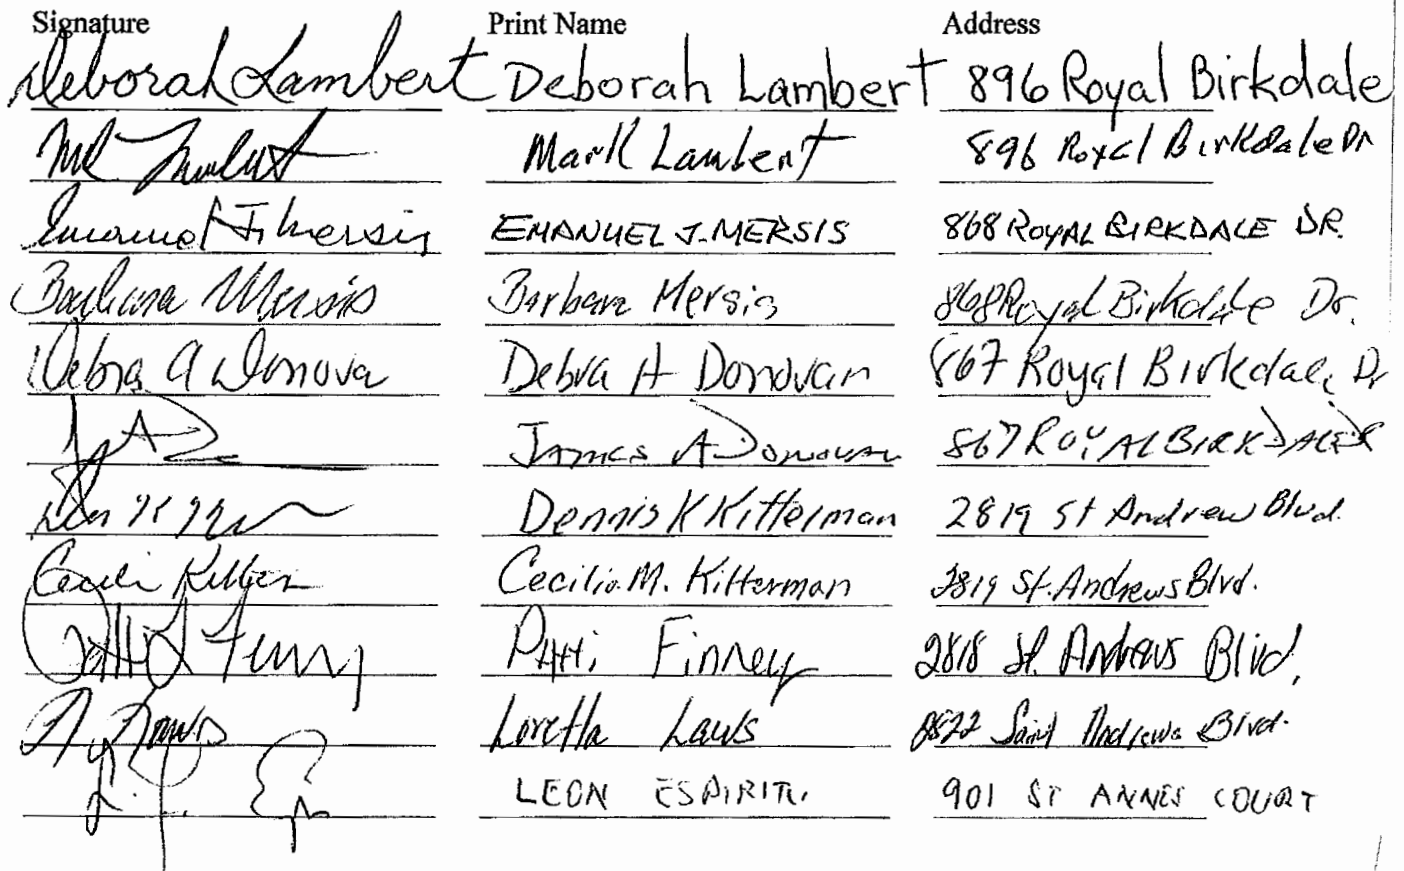 Signature Print Name Address
Deborah Lambert Deborah Lambert 896 Royal Birkdale
Mark Lambert 896 Royal Birkdale Dr
Emanuel J. Mersis EMANUEL J. MERSIS 868 ROYAL BIRKDALE DR.
Barbara Mersis Barbara Mersis 868 Royal Birkdale Dr.
Debra A Donovan Debra A Donovan 867 Royal Birkdale Dr
James A Donovan 867 ROYAL BIRKDALE DR
Dennis K Kitterman 2819 St Andrew Blvd.
Cecilia M. Kitterman 2819 St. Andrews Blvd.
Patti Finney 2818 St. Andrews Blvd.
Loretta Laws 2822 Saint Andrews Blvd.
LEON ESPIRITU 901 ST ANNES COURT